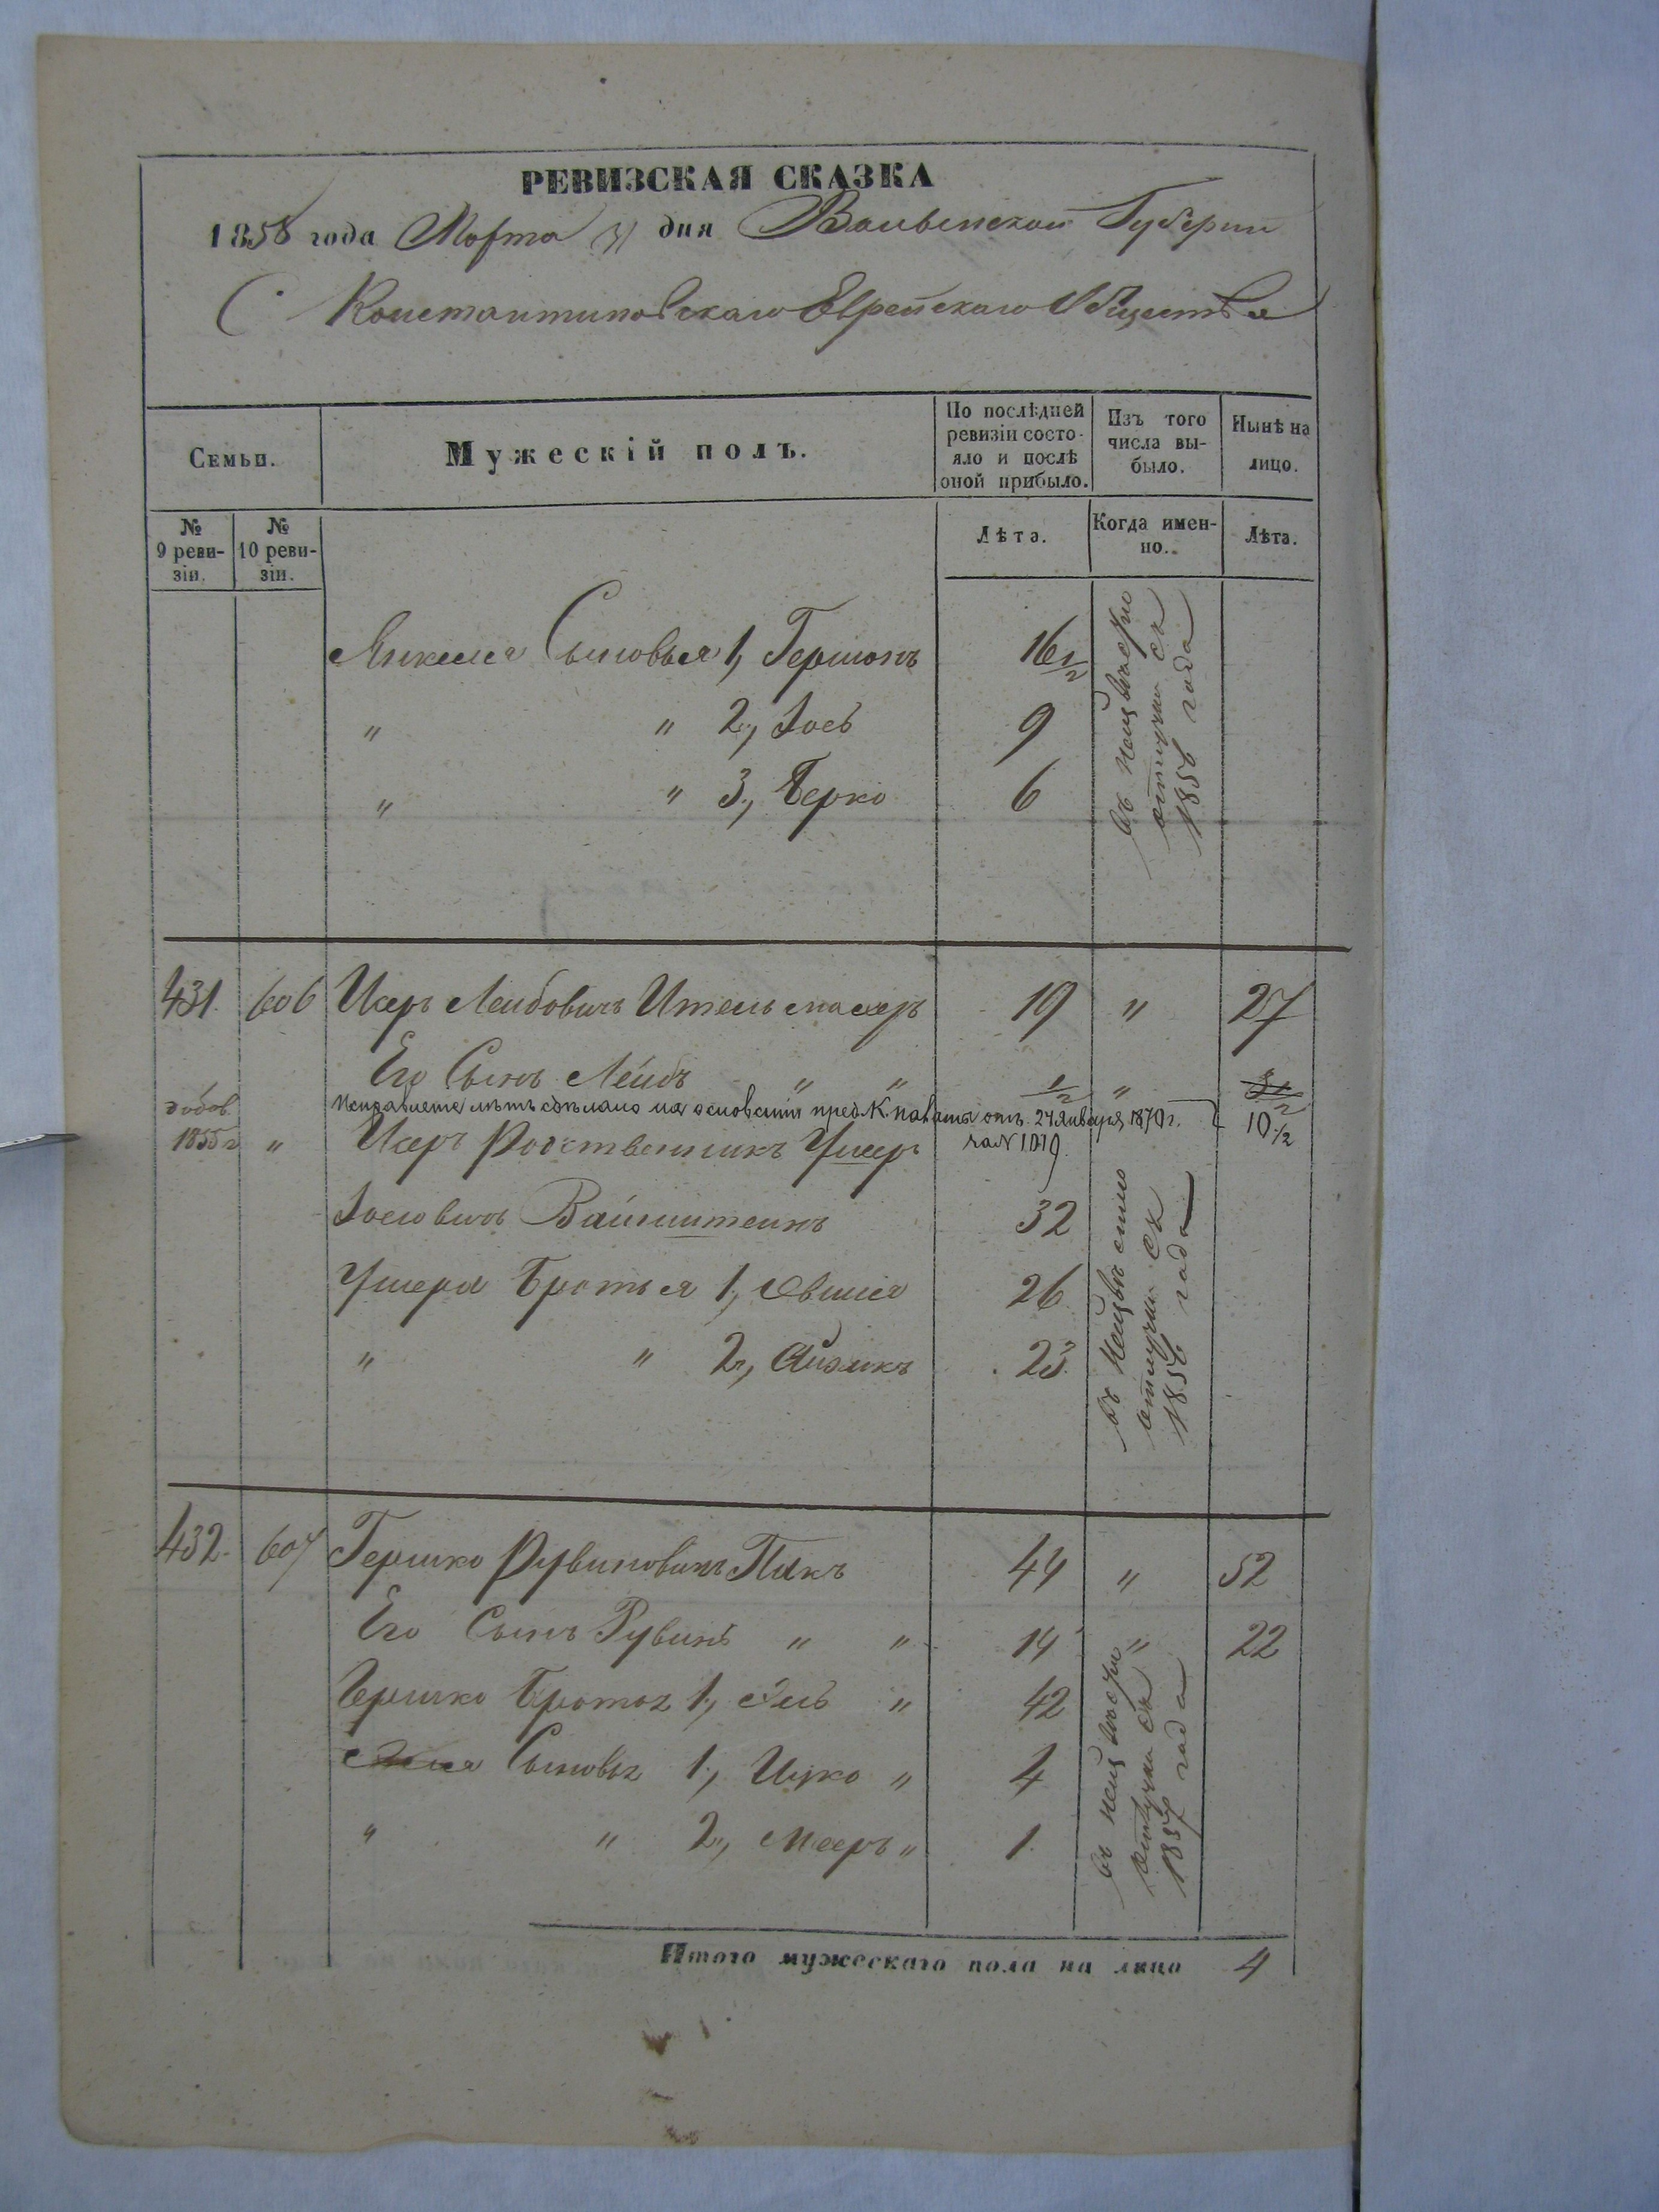 РЕВИЗСКАЯ СКАЗКА
1858 года Марта 31 дня Волынской Губернии
С Константиновскаго Еврейскаго Общества
Семьи.
Мужескій полъ.
По послѣдней ревизіи состояло и послѣ оной прибыло.
Изъ того числа выбыло.
Нынѣ на лицо.
№ 9 ревизіи.
№ 10 ревизіи.
Лѣта.
Когда именно.
Лѣта.
Сыновья 1, Гершонъ 16 1/2
" " 2, Іось 9
" " 3, Берко 6
отлучки съ 1856 года
431. 606 Исеръ Лейбовичъ Ительмахеръ 19 " 27
Его Сынъ Лейбъ " " 1/2 "
Исправленіе лѣтъ сдѣлано на основаніи пред. К. палаты отъ 24 Января 1870 г. за N 1019. 10 1/2
добов. 1855 г. " Исера Родственникъ Ушеръ
Іосіовичъ Вайнштейнъ 32
Ушера Братья 1, Овшія 26
" " 2, Айзикъ 23.
въ неизвѣстной отлучки съ 1856 года
432. 607 Гершко Рувиновичъ Пикъ 44 " 52
Его Сынъ Рувинъ " " 14 " 22
Гершко Братья 1, " 42
Сыновья 1, Ицко " 4
" " 2, Мееръ " 1.
отлучки съ 1857 года
Итого мужескаго пола на лицо 4